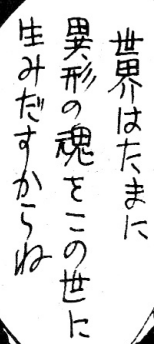 世界はたまに
異形の魂をこの世に
生みだすからね